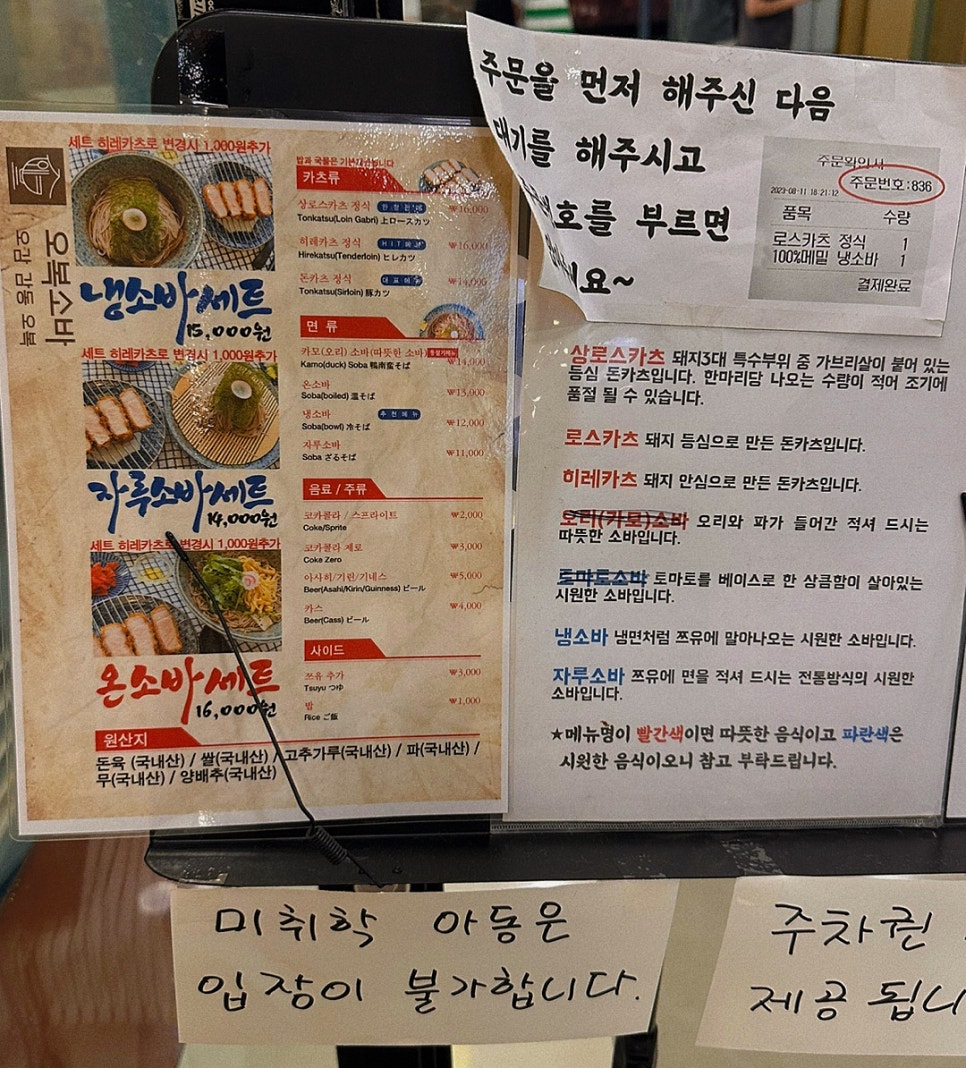 세트 히레카츠로 변경시 1,000원추가
냉소바세트
15,000원
세트 히레카츠로 변경시 1,000원추가
자루소바세트
14,000원
세트 히레카츠로 변경시 1,000원추가
온소바세트
16,000원
오복소바
오감 감동 오복
카츠류
상로스카츠 정식 ₩16,000
Tonkatsu(Loin Gabri) 上ロースカツ
히레카츠 정식 HIT메뉴 ₩16,000
Hirekatsu(Tenderloin) ヒレカツ
돈카츠 정식 대표메뉴 ₩14,000
Tonkatsu(Sirloin) 豚カツ
면 류
카모(오리) 소바(따뜻한 소바) ₩14,000
Kamo(duck) Soba 鴨南蛮そば
온소바 ₩13,000
Soba(boiled) 温そば
냉소바 추천메뉴 ₩12,000
Soba(bowl) 冷そば
자루소바 ₩11,000
Soba ざるそば
음료 / 주류
코카콜라 / 스프라이트 ₩2,000
Coke/Sprite
코카콜라 제로 ₩3,000
Coke Zero
아사히/기린/기네스 ₩5,000
Beer(Asahi/Kirin/Guinness) ビール
카스 ₩4,000
Beer(Cass) ビール
사이드
쯔유 추가 ₩3,000
Tsuyu つゆ
밥 ₩1,000
Rice ご飯
원산지
돈육 (국내산) / 쌀(국내산) / 고추가루(국내산) / 파(국내산) /
무(국내산) / 양배추(국내산)
주문을 먼저 해주신 다음
대기를 해주시고
번호를 부르면
요~
주문확인서
주문번호:836
2023-08-11 18:21:12
품목 수량
로스카츠 정식 1
100%메밀 냉소바 1
결제완료
상로스카츠 돼지3대 특수부위 중 가브리살이 붙어 있는
등심 돈카츠입니다. 한마리당 나오는 수량이 적어 조기에
품절 될 수 있습니다.
로스카츠 돼지 등심으로 만든 돈카츠입니다.
히레카츠 돼지 안심으로 만든 돈카츠입니다.
오리(카모)소바 오리와 파가 들어간 적셔 드시는
따뜻한 소바입니다.
토마토소바 토마토를 베이스로 한 상큼함이 살아있는
시원한 소바입니다.
냉소바 냉면처럼 쯔유에 말아나오는 시원한 소바입니다.
자루소바 쯔유에 면을 적셔 드시는 전통방식의 시원한
소바입니다.
★메뉴명이 빨간색이면 따뜻한 음식이고 파란색은
시원한 음식이오니 참고 부탁드립니다.
미취학 아동은
입장이 불가합니다.
주차권
제공 됩니